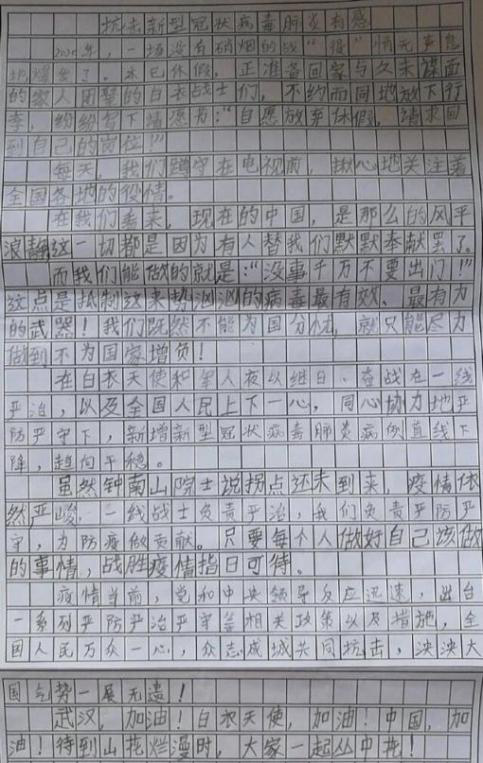 抗击新型冠状病毒肺炎有感
2020年,一场没有硝烟的战“役”悄无声息
地爆发了。本已休假,正准备回家与久未谋面
的家人团聚的白衣战士们,不约而同地放下行
李,纷纷写下请愿书:“自愿放弃休假,请求回
到自己的岗位!”
每天,我们蹲守在电视前,揪心地关注着
全国各地的役情。
在我们看来,现在的中国,是那么的风平
浪静这一切都是因为有人替我们默默奉献罢了。
而我们能做的就是:“没事千万不要出门!”
这点是抵制这来势汹汹的病毒最有效、最有力
的武器!我们既然不能为国分忧,就只能尽力
做到不为国家增负!
在白衣天使和军人夜以继日、奋战在一线
严治,以及全国人民上下一心,同心协力地严
防严守下,新增新型冠状病毒肺炎病例直线下
降,趋向平稳。
虽然钟南山院士说拐点还未到来,疫情依
然严峻,一线战士负责严治,我们负责严防严
守,为防疫做贡献。只要每个人做好自己该做
的事情,战胜疫情指日可待。
疫情当前,党和中央领导反应迅速,出台
一系列严防严治严守等相关政策以及措施,全
国人民万众一心,众志成城共同抗击,泱泱大
国气势一展无遗!
武汉,加油!白衣天使,加油!中国,加
油!待到山花烂漫时,大家一起丛中笑!